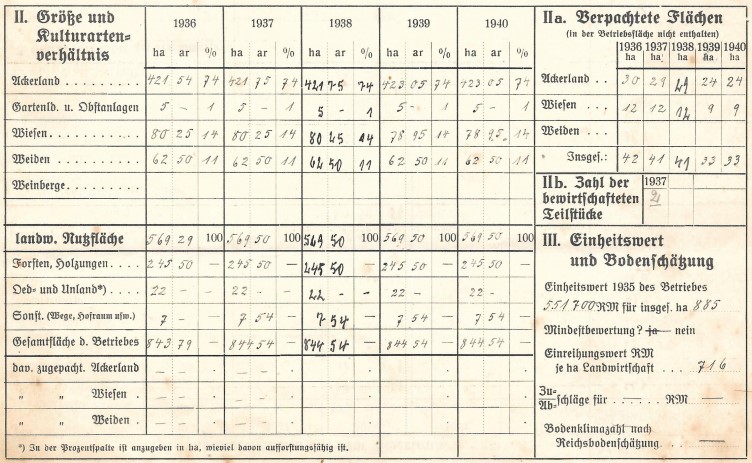 II. Größe und Kulturarten-verhältnis 1936 1937 1938 1939 1940
ha ar % ha ar % ha ar % ha ar % ha ar %
Ackerland . . . . . . . . 421 54 74 421 75 74 421 75 74 423 05 74 423 05 74
Gartenld. u. Obstanlagen 5 - 1 5 - 1 5 - 1 5 - 1 5 - 1
Wiesen . . . . . . . . . 80 25 14 80 25 14 80 25 14 78 95 14 78 95 14
Weiden . . . . . . . . . 62 50 11 62 50 11 62 50 11 62 50 11 62 50 11
Weinberge. . . . . . . .
landw. Nutzfläche 569 29 100 569 50 100 569 50 100 569 50 100 569 50 100
Forsten, Holzungen . . . . 245 50 — 245 50 — 245 50 — 245 50 — 245 50 —
Oed- und Unland*) . . . . 22 - 22 - 22 - - 22 - 22 -
Sonst. (Wege, Hofraum usw.) 7 - 7 54 7 54 - 7 54 - 7 54 —
Gesamtfläche d. Betriebes 843 79 — 844 54 — 844 54 — 844 54 — 844 54 —
dav. zugepacht. Ackerland — — — —
„ „ Wiesen . — — — —
„ „ Weiden . — — — —
*) In der Prozentspalte ist anzugeben in ha, wieviel davon aufforstungsfähig ist.
IIa. Verpachtete Flächen
(in der Betriebsfläche nicht enthalten)
1936 1937 1938 1939 1940
ha ha ha ha ha
Ackerland . . 30 29 29 24 24
Wiesen . . . 12 12 12 9 9
Weiden . . .
Insges.: 42 41 41 33 33
IIb. Zahl der bewirtschafteten Teilstücke 1937
2
III. Einheitswert
und Bodenschätzung
Einheitswert 1935 des Betriebes
551700 RM für insges. ha 885
Mindestbewertung? ja nein
Einreihungswert RM
je ha Landwirtschaft . . . . 716
Zu-
Ab- schläge für — RM —
Bodenklimazahl nach
Reichsbodenschätzung. —